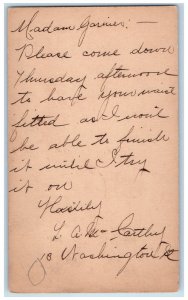 Madam Garnier: —
Please come down
Thursday afternoon
to have your waist
fitted as I won't
be able to finish
it until I try
it on
Hastily
L. A. McCarthy
18 Washington